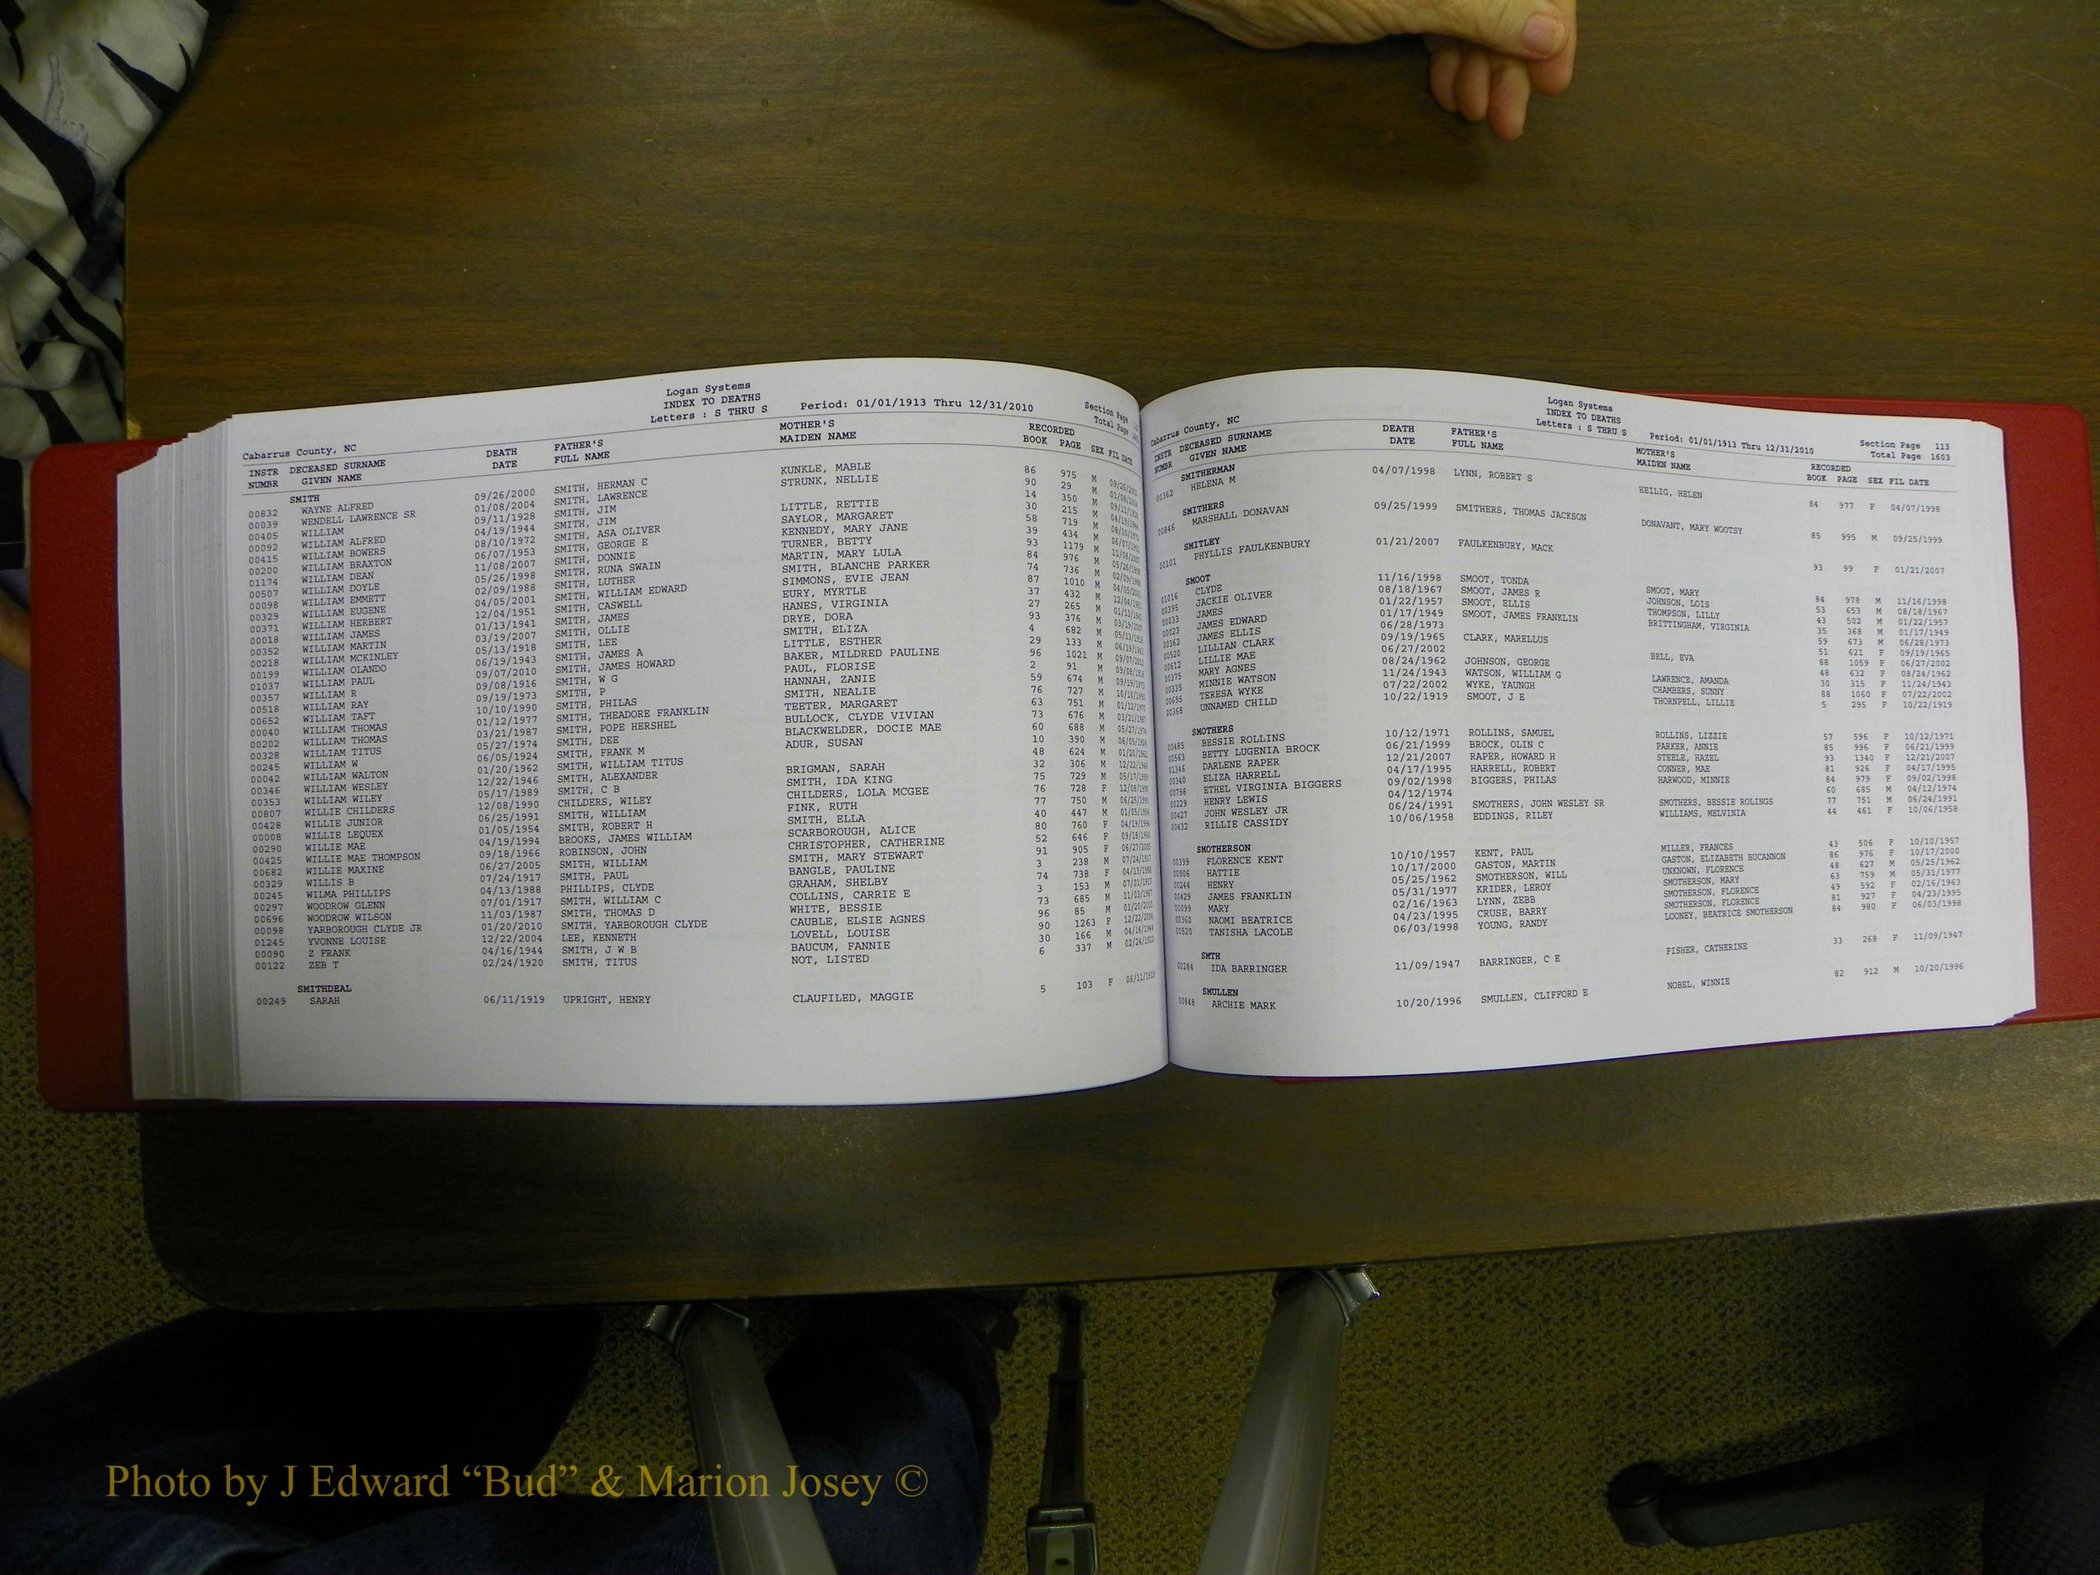 Logan Systems
INDEX TO DEATHS
Letters : S THRU S Period: 01/01/1913 Thru 12/31/2010
Section Page
Total Page
Cabarrus County, NC
INSTR NUMBR DECEASED SURNAME GIVEN NAME DEATH DATE FATHER'S FULL NAME MOTHER'S MAIDEN NAME RECORDED BOOK PAGE SEX FIL DATE
SMITH
00832 WAYNE ALFRED 09/26/2000 SMITH, HERMAN C KUNKLE, MABLE 86 975 M 09/26/2000
00039 WENDELL LAWRENCE SR 01/08/2004 SMITH, LAWRENCE STRUNK, NELLIE 90 29 M 01/08/2004
00405 WILLIAM 09/11/1928 SMITH, JIM 14 350 M 09/11/1928
00092 WILLIAM ALFRED 04/19/1944 SMITH, JIM LITTLE, RETTIE 30 215 M 04/19/1944
00415 WILLIAM BOWERS 08/10/1972 SMITH, ASA OLIVER SAYLOR, MARGARET 58 719 M 08/10/1972
00200 WILLIAM BRAXTON 06/07/1953 SMITH, GEORGE E KENNEDY, MARY JANE 39 434 M 06/07/1953
01174 WILLIAM DEAN 11/08/2007 SMITH, DONNIE TURNER, BETTY 93 1179 M 11/08/2007
00507 WILLIAM DOYLE 05/26/1998 SMITH, RUNA SWAIN MARTIN, MARY LULA 84 976 M 05/26/1998
00098 WILLIAM EMMETT 02/09/1988 SMITH, LUTHER SMITH, BLANCHE PARKER 74 736 M 02/09/1988
00329 WILLIAM EUGENE 04/05/2001 SMITH, WILLIAM EDWARD SIMMONS, EVIE JEAN 87 1010 M 04/05/2001
00371 WILLIAM HERBERT 12/04/1951 SMITH, CASWELL EURY, MYRTLE 37 432 M 12/04/1951
00018 WILLIAM JAMES 01/13/1941 SMITH, JAMES HANES, VIRGINIA 27 265 M 01/13/1941
00352 WILLIAM MARTIN 03/19/2007 SMITH, OLLIE DRYE, DORA 93 376 M 03/19/2007
00218 WILLIAM MCKINLEY 05/13/1918 SMITH, LEE SMITH, ELIZA 4 682 M 05/13/1918
00199 WILLIAM OLANDO 06/19/1943 SMITH, JAMES A LITTLE, ESTHER 29 133 M 06/19/1943
01037 WILLIAM PAUL 09/07/2010 SMITH, JAMES HOWARD BAKER, MILDRED PAULINE 96 1021 M 09/07/2010
00357 WILLIAM R 09/08/1916 SMITH, W G PAUL, FLORISE 2 91 M 09/08/1916
00518 WILLIAM RAY 09/19/1973 SMITH, P HANNAH, ZANIE 59 674 M 09/19/1973
00652 WILLIAM TAFT 10/10/1990 SMITH, PHILAS SMITH, NEALIE 76 727 M 10/10/1990
00040 WILLIAM THOMAS 01/12/1977 SMITH, THEADORE FRANKLIN TEETER, MARGARET 63 751 M 01/12/1977
00202 WILLIAM THOMAS 03/21/1987 SMITH, POPE HERSHEL BULLOCK, CLYDE VIVIAN 73 676 M 03/21/1987
00328 WILLIAM TITUS 05/27/1974 SMITH, DEE BLACKWELDER, DOCIE MAE 60 688 M 05/27/1974
00245 WILLIAM W 06/05/1924 SMITH, FRANK M ADUR, SUSAN 10 390 M 06/05/1924
00042 WILLIAM WALTON 01/20/1962 SMITH, WILLIAM TITUS 48 624 M 01/20/1962
00346 WILLIAM WESLEY 12/22/1946 SMITH, ALEXANDER BRIGMAN, SARAH 32 306 M 12/22/1946
00353 WILLIAM WILEY 05/17/1989 SMITH, C B SMITH, IDA KING 75 729 M 05/17/1989
00807 WILLIE CHILDERS 12/08/1990 CHILDERS, WILEY CHILDERS, LOLA MCGEE 76 728 F 12/08/1990
00428 WILLIE JUNIOR 06/25/1991 SMITH, WILLIAM FINK, RUTH 77 750 M 06/25/1991
00008 WILLIE LEQUEX 01/05/1954 SMITH, ROBERT H SMITH, ELLA 40 447 M 01/05/1954
00290 WILLIE MAE 04/19/1994 BROOKS, JAMES WILLIAM SCARBOROUGH, ALICE 80 760 F 04/19/1994
00425 WILLIE MAE THOMPSON 09/18/1966 ROBINSON, JOHN CHRISTOPHER, CATHERINE 52 646 F 09/18/1966
00682 WILLIE MAXINE 06/27/2005 SMITH, WILLIAM SMITH, MARY STEWART 91 905 F 06/27/2005
00329 WILLIS B 07/24/1917 SMITH, PAUL BANGLE, PAULINE 3 238 M 07/24/1917
00245 WILMA PHILLIPS 04/13/1988 PHILLIPS, CLYDE GRAHAM, SHELBY 74 738 F 04/13/1988
00297 WOODROW GLENN 07/01/1917 SMITH, WILLIAM C COLLINS, CARRIE E 3 153 M 07/01/1917
00696 WOODROW WILSON 11/03/1987 SMITH, THOMAS D WHITE, BESSIE 73 685 M 11/03/1987
00098 YARBOROUGH CLYDE JR 01/20/2010 SMITH, YARBOROUGH CLYDE CAUBLE, ELSIE AGNES 96 85 M 01/20/2010
01245 YVONNE LOUISE 12/22/2004 LEE, KENNETH LOVELL, LOUISE 90 1263 F 12/22/2004
00090 Z FRANK 04/16/1944 SMITH, J W B BAUCUM, FANNIE 30 166 M 04/16/1944
00122 ZEB T 02/24/1920 SMITH, TITUS NOT, LISTED 6 337 M 02/24/1920
SMITHDEAL
00249 SARAH 06/11/1919 UPRIGHT, HENRY CLAUFILED, MAGGIE 5 103 F 06/11/1919
Logan Systems
INDEX TO DEATHS
Letters : S THRU S Period: 01/01/1913 Thru 12/31/2010
Section Page 113
Total Page 1603
Cabarrus County, NC
INSTR NUMBR DECEASED SURNAME GIVEN NAME DEATH DATE FATHER'S FULL NAME MOTHER'S MAIDEN NAME RECORDED BOOK PAGE SEX FIL DATE
SMITHERMAN
00362 HELENA M 04/07/1998 LYNN, ROBERT S HEILIG, HELEN 84 977 F 04/07/1998
SMITHERS
00846 MARSHALL DONAVAN 09/25/1999 SMITHERS, THOMAS JACKSON DONAVANT, MARY WOOTSY 85 995 M 09/25/1999
SMITLEY
00101 PHYLLIS FAULKENBURY 01/21/2007 FAULKENBURY, MACK 93 99 F 01/21/2007
SMOOT
01016 CLYDE 11/16/1998 SMOOT, TONDA SMOOT, MARY 84 978 M 11/16/1998
00395 JACKIE OLIVER 08/18/1967 SMOOT, JAMES R JOHNSON, LOIS 53 653 M 08/18/1967
00033 JAMES 01/22/1957 SMOOT, ELLIS THOMPSON, LILLY 43 502 M 01/22/1957
00023 JAMES EDWARD 01/17/1949 SMOOT, JAMES FRANKLIN BRITTINGHAM, VIRGINIA 35 368 M 01/17/1949
00362 JAMES ELLIS 06/28/1973 59 673 M 06/28/1973
00520 LILLIAN CLARK 09/19/1965 CLARK, MARELLUS 51 621 F 09/19/1965
00612 LILLIE MAE 06/27/2002 BELL, EVA 88 1059 F 06/27/2002
00375 MARY AGNES 08/24/1962 JOHNSON, GEORGE 48 632 F 08/24/1962
00335 MINNIE WATSON 11/24/1943 WATSON, WILLIAM G LAWRENCE, AMANDA 30 315 F 11/24/1943
00695 TERESA WYKE 07/22/2002 WYKE, YAUNGH CHAMBERS, SUNNY 88 1060 F 07/22/2002
00368 UNNAMED CHILD 10/22/1919 SMOOT, J E THORNPELL, LILLIE 5 295 F 10/22/1919
SMOTHERS
00485 BESSIE ROLLINS 10/12/1971 ROLLINS, SAMUEL ROLLINS, LIZZIE 57 596 F 10/12/1971
00563 BETTY LUGENIA BROCK 06/21/1999 BROCK, OLIN C PARKER, ANNIE 85 996 F 06/21/1999
01346 DARLENE RAPER 12/21/2007 RAPER, HOWARD H STEELE, HAZEL 93 1340 F 12/21/2007
00340 ELIZA HARRELL 04/17/1995 HARRELL, ROBERT CONNER, MAE 81 926 F 04/17/1995
00798 ETHEL VIRGINIA BIGGERS 09/02/1998 BIGGERS, PHILAS HARWOOD, MINNIE 84 979 F 09/02/1998
00229 HENRY LEWIS 04/12/1974 60 685 M 04/12/1974
00427 JOHN WESLEY JR 06/24/1991 SMOTHERS, JOHN WESLEY SR SMOTHERS, BESSIE ROLINGS 77 751 M 06/24/1991
00432 RILLIE CASSIDY 10/06/1958 EDDINGS, RILEY WILLIAMS, MELVINIA 44 461 F 10/06/1958
SMOTHERSON
00399 FLORENCE KENT 10/10/1957 KENT, PAUL MILLER, FRANCES 43 506 F 10/10/1957
00906 HATTIE 10/17/2000 GASTON, MARTIN GASTON, ELIZABETH BUCANNON 86 976 F 10/17/2000
00244 HENRY 05/25/1962 SMOTHERSON, WILL UNKNOWN, FLORENCE 48 627 M 05/25/1962
00429 JAMES FRANKLIN 05/31/1977 KRIDER, LEROY SMOTHERSON, MARY 63 759 M 05/31/1977
00099 MARY 02/16/1963 LYNN, ZEBB SMOTHERSON, FLORENCE 49 592 F 02/16/1963
00360 NAOMI BEATRICE 04/23/1995 CRUSE, BARRY SMOTHERSON, FLORENCE 81 927 F 04/23/1995
00520 TANISHA LACOLE 06/03/1998 YOUNG, RANDY LOONEY, BEATRICE SMOTHERSON 84 980 F 06/03/1998
SMTH
00284 IDA BARRINGER 11/09/1947 BARRINGER, C E FISHER, CATHERINE 33 268 F 11/09/1947
SMULLEN
00848 ARCHIE MARK 10/20/1996 SMULLEN, CLIFFORD E NOBEL, WINNIE 82 912 M 10/20/1996
Photo by J Edward “Bud” & Marion Josey ©